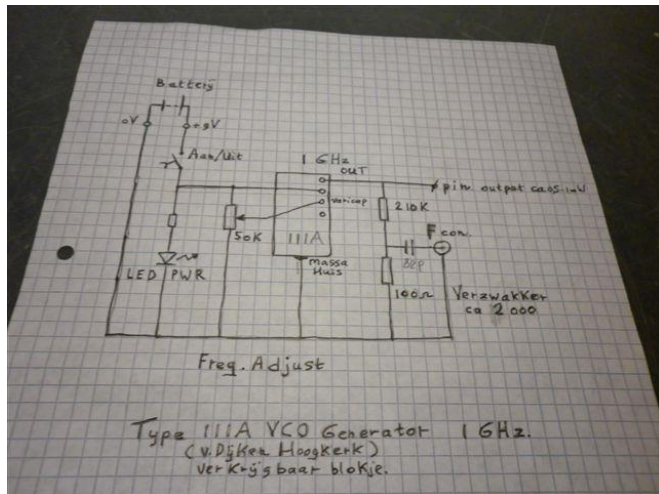 Battery
0V
+9V
Aan/Uit
1 GHz
OUT
pin. output ca 0.5-1mW
varicap
210K
50K
111A
F con.
82p
massa
Huis
LED PWR
100Ω
Verzwakker
ca 2000
Freq. Adjust
Type 111A VCO Generator 1 GHz.
(v. Dijken Hoogkerk)
verkrijgbaar blokje.